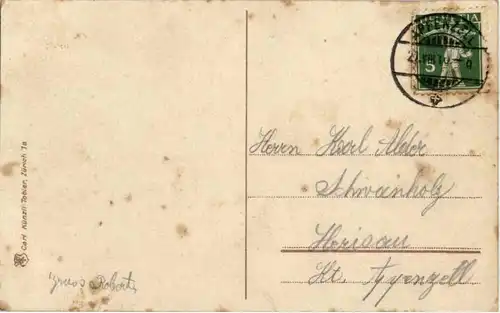 HELVETIA
5
Herrn Karl Alder
Schwanholz
Herisau
Kt. Appenzell
Gruss Robert
Carl Künzli-Tobler, Zürich